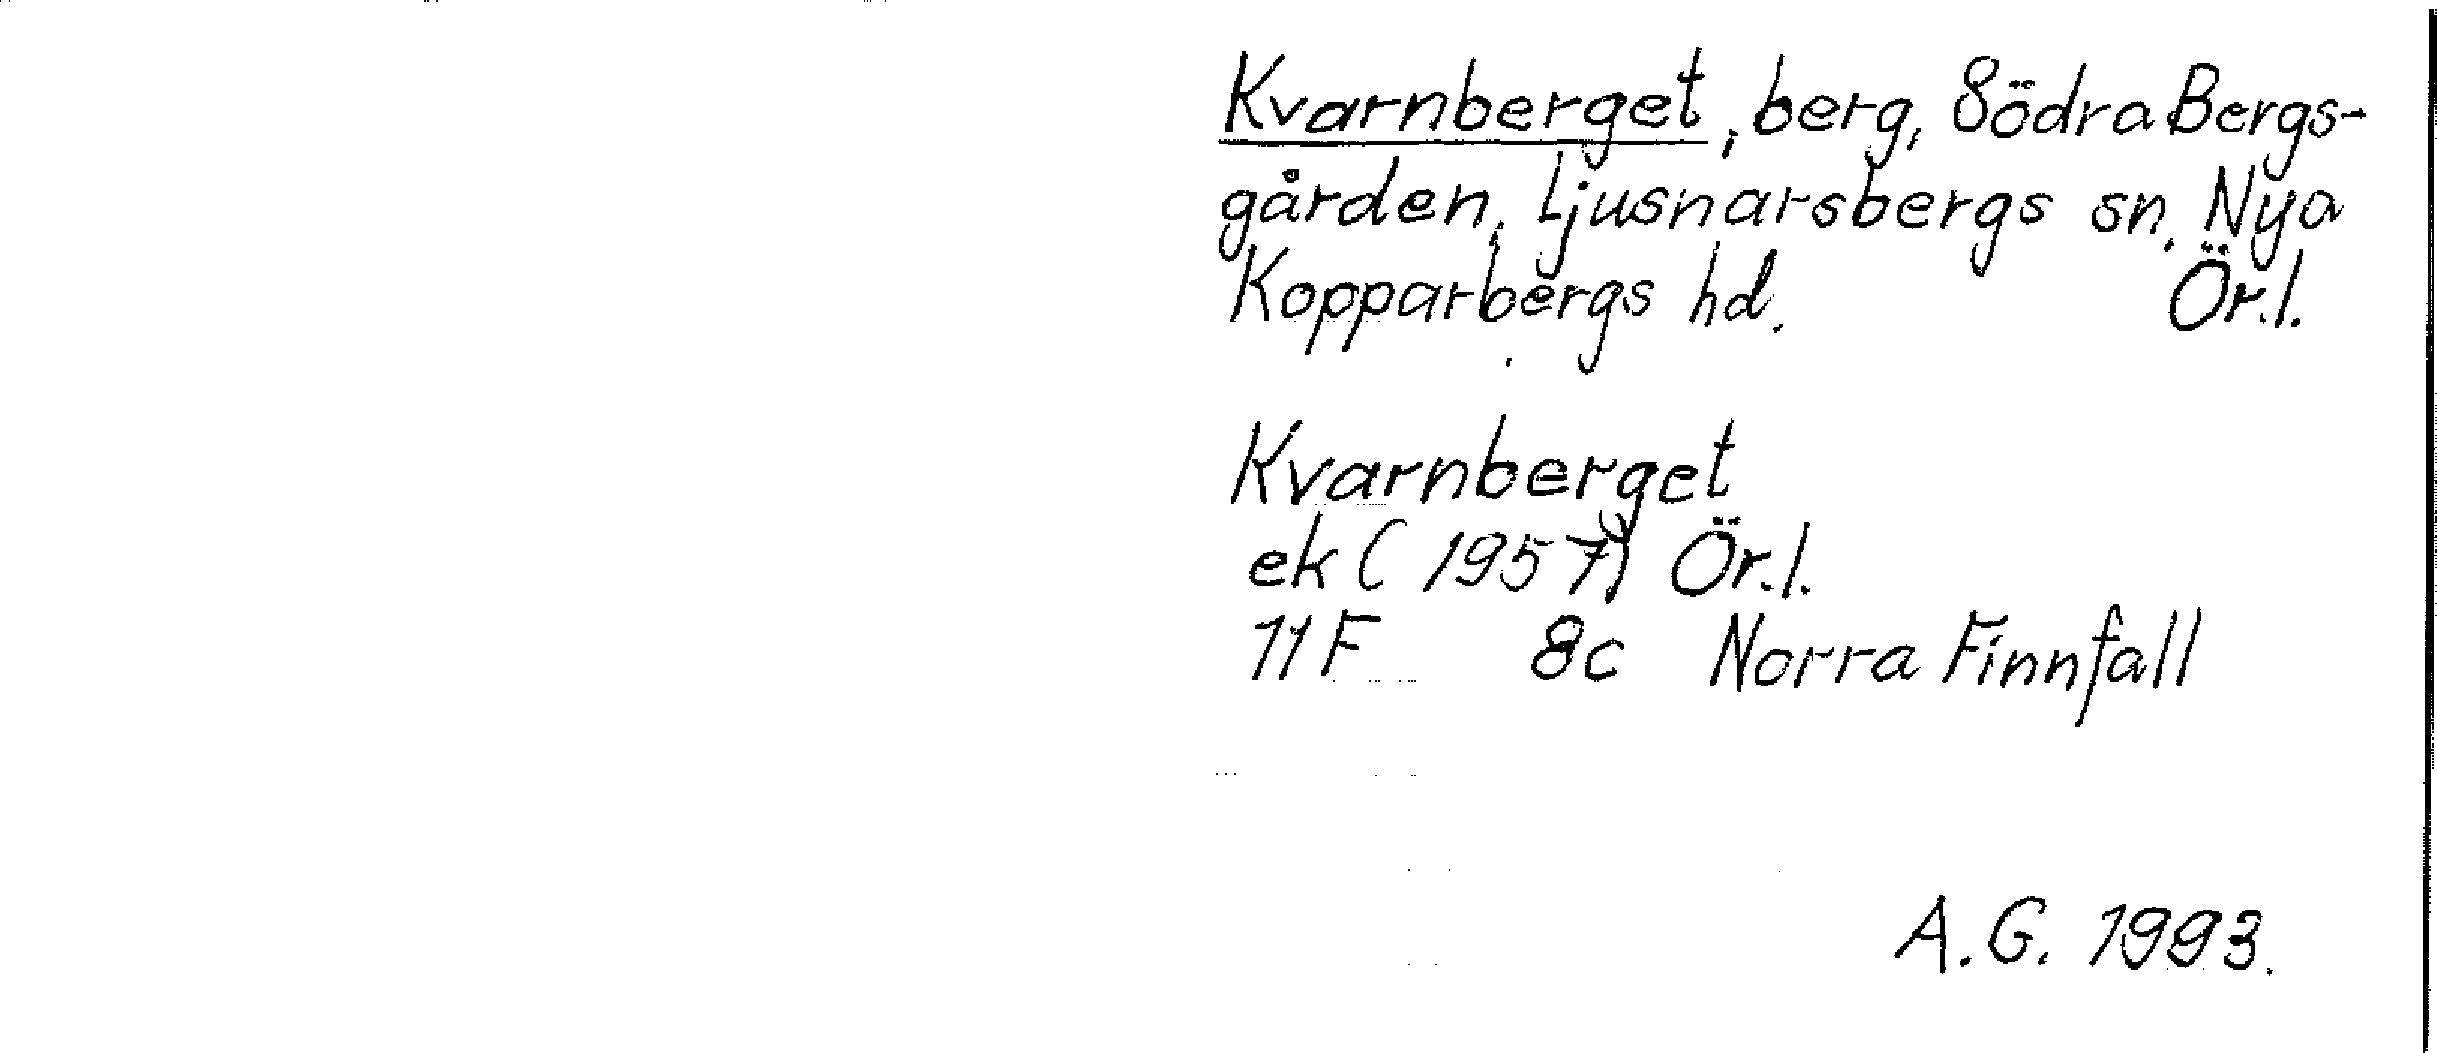 Kvarnberget, berg, Södra Bergs-
gården, Ljusnarsbergs sn, Nya
Kopparbergs hd. Ör.l.
Kvarnberget
ek (1957) Ör.l.
11F 8c Norra Finnfall
A.G. 1993.